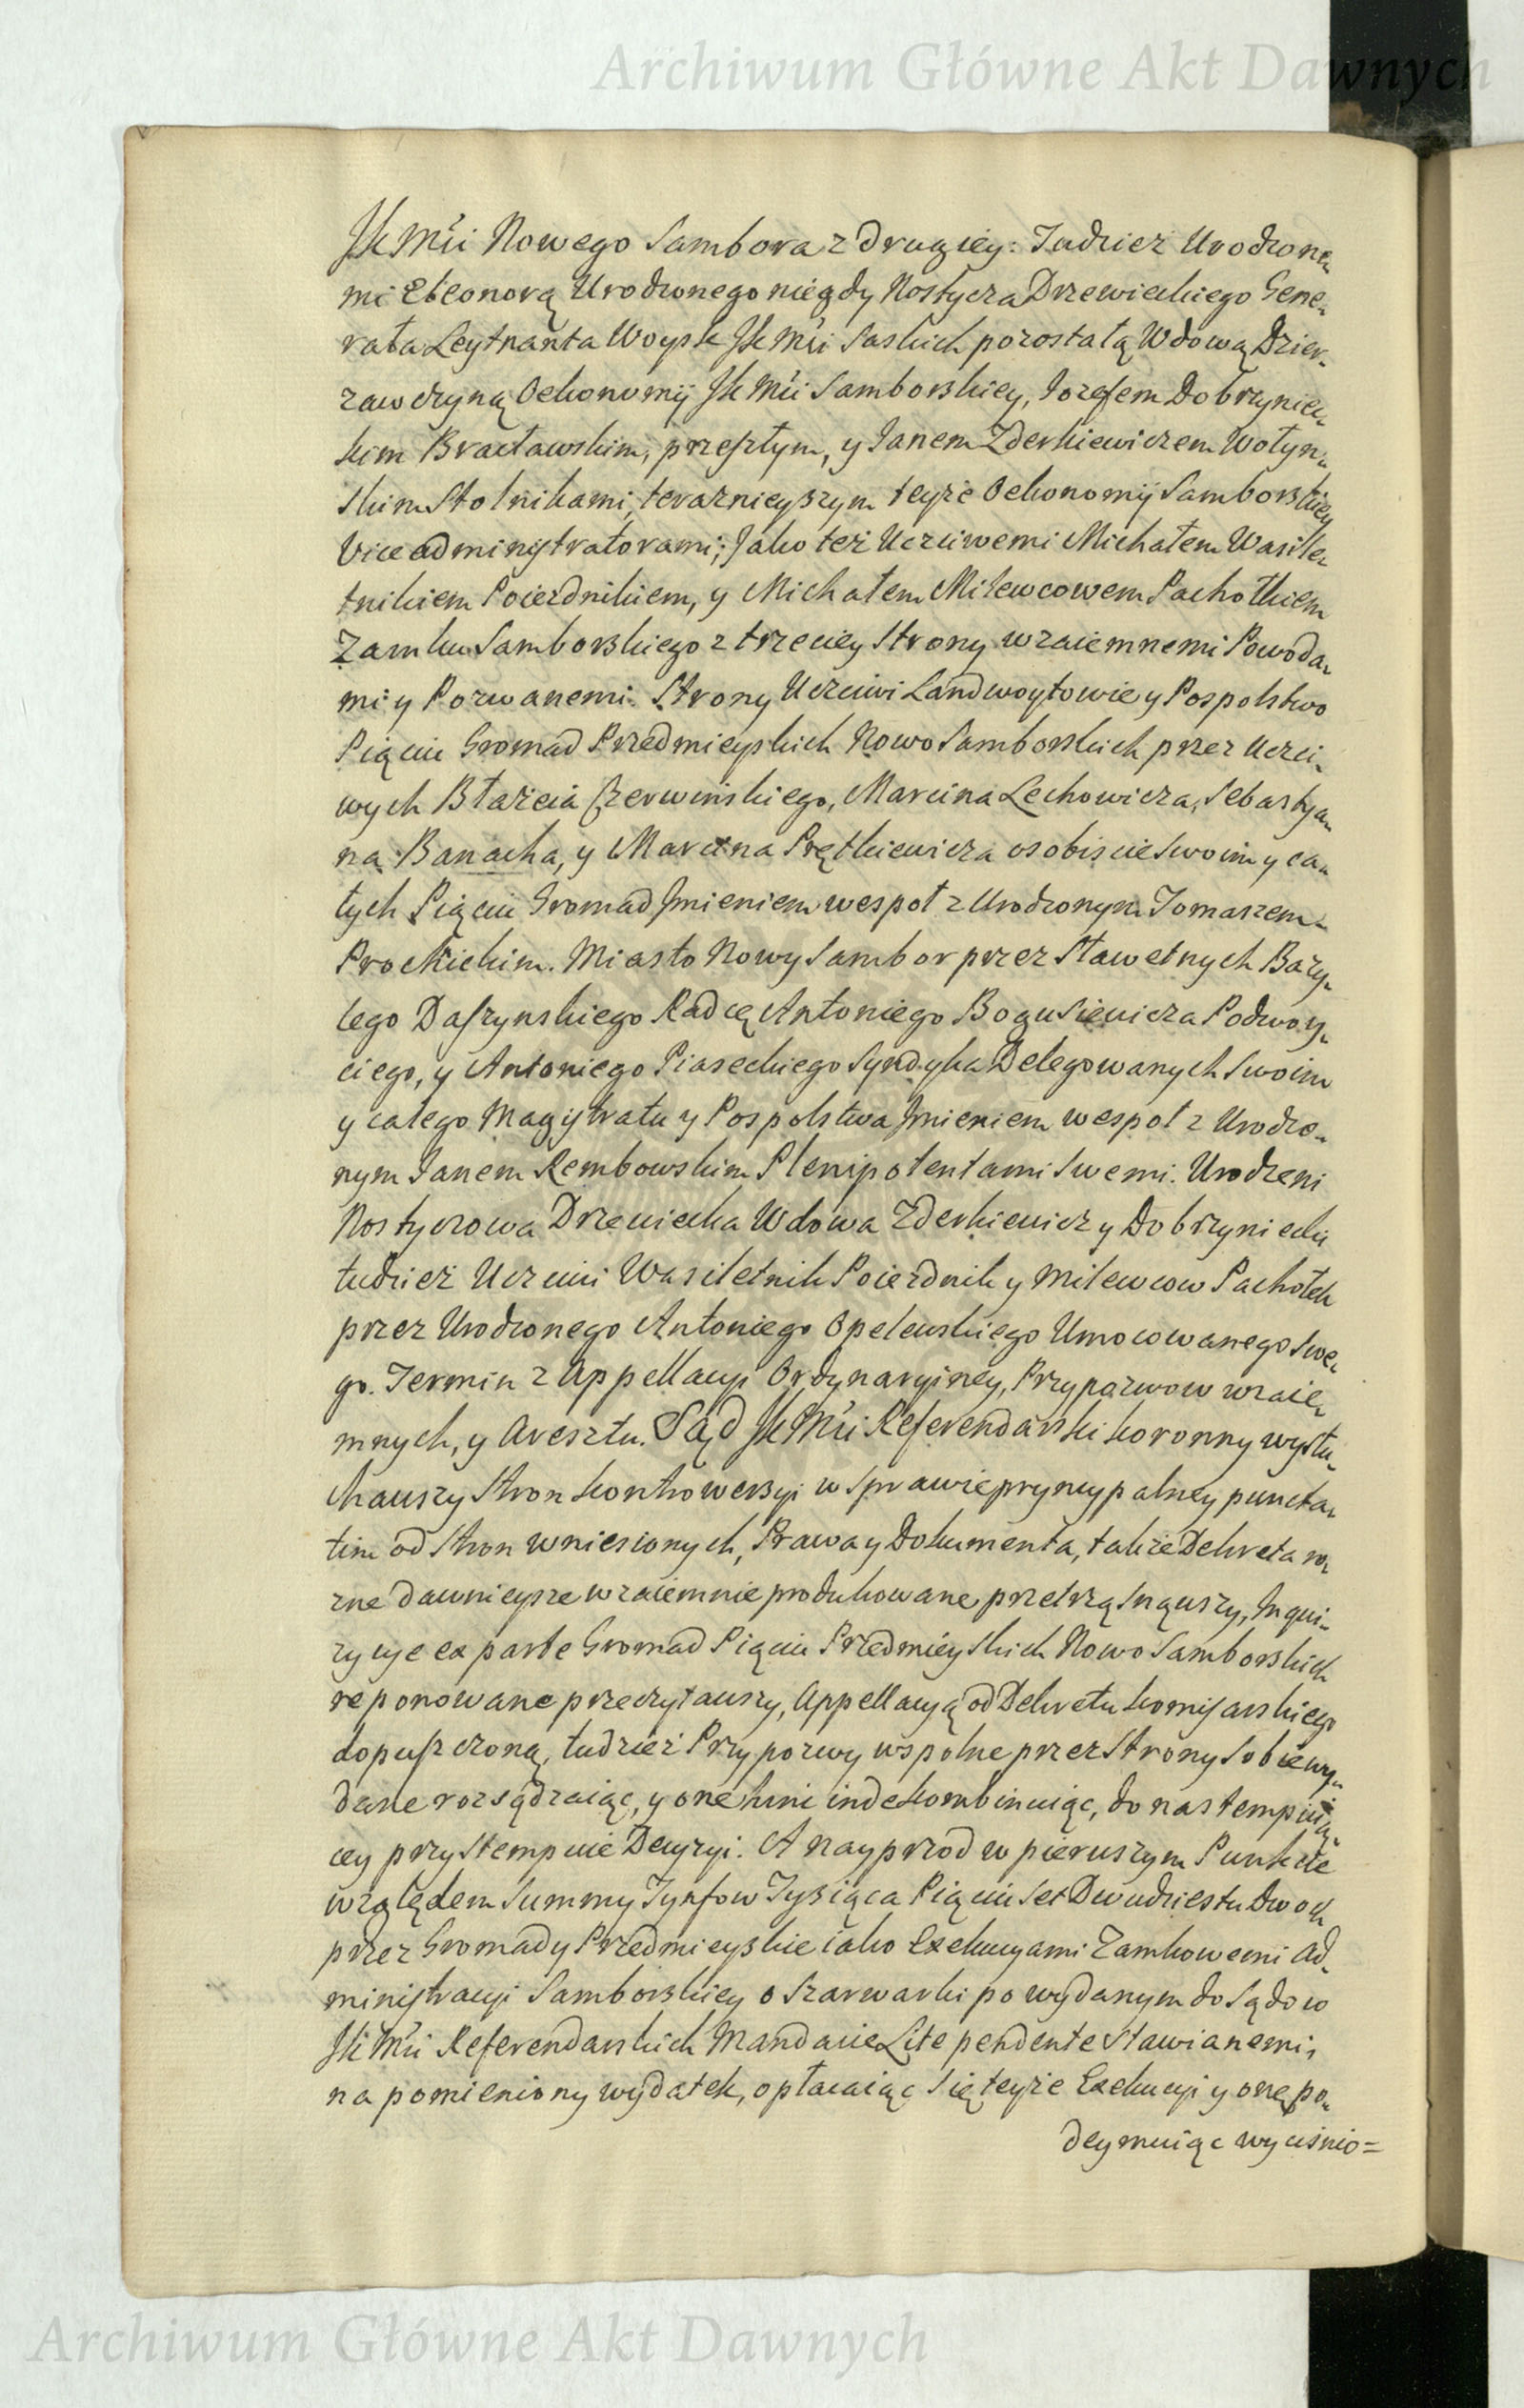 Archiwum Główne Akt Dawnych
JKMci Nowego Sambora z drugiey: Tudzież Urodzone„
mi Eleonorą Urodzonego niegdy Nostycza Drzewieckiego Gene„
rała Leytnanta Woysk JKMci Saskich pozostałą Wdową Dzier„
zawczyną Oekonomij JKMci Samborskiey, Jozefem Dobrzyniec„
kim Bracławskim, przeszłym, y Janem Zderkiewiczem Wołyn„
skim Stolnikami, teraznieyszym teyże Oekonomij Samborskiey
Viceadministratorami; Jako też Uczciwemi Michałem Wasile„
tnikiem Poiezdnikiem, y Michałem Milewcowem Pachołkiem
Zamku Samborskiego z trzeciey Strony wzaiemnemi Powoda„
mi y Pozwanemi. Strony Uczciwi Landwoytowie y Pospolstwo
Piąciu Gromad Przedmieyskich Nowo Samborskich przez Uczci„
wych Błażeia Czerwinskiego, Marcina Lechowicza, Sebastya„
na Banacha, y Marcina Prętkiewicza osobiscie Swoim y ca„
łych Piąciu Gromad Jmieniem wespoł z Urodzonym Tomaszem
Prockickim. Miasto Nowy Sambor przez Sławetnych Bazy„
lego Daszynskiego Radcę Antoniego Bogusiewicza Podwoy„
ciego, y Antoniego Piaseckiego Syndyka Delegowanych Swoim
y całego Magistratu y Pospolstwa Jmieniem wespoł z Urodzo„
nym Janem Rembowskim Plenipotentami Swemi. Urodzeni
Nostyczowa Drzewiecka Wdowa Zderkiewicz y Dobrzyniecki
tudzież Uczciwi Wasiletnik Poiezdnik y Milewcow Pachołek
przez Urodzonego Antoniego Opelewskiego Umocowanego Swe„
go. Termin z Appellacyi Ordynaryiney, Przypozwow wzaie„
mnych, y Aresztu. Sąd JKMci Referendarski Koronny wysłu„
chawszy Stron Kontrowersyi w Sprawie pryncypalney puncta„
tim od Stron wniesionych, Prawa y Dokumenta, także Dekreta ro„
zne dawnieysze wzaiemnie produkowane przetrząsnąwszy, Inqui„
zycye ex parte Gromad Piąciu Przedmieyskich Nowo Samborskich
reponowane przeczytawszy, Appellacyą od Dekretu Komisarskiego
dopuszczoną, tudzież Przypozwy wspolne przez Strony Sobie wy„
dane rozsądzaiąc, y one hinc inde Kombinuiąc, do nastempuią„
cey przystempuie Decyzyi. A nayprzod w pierwszym Punkcie
względem Summy Tynfow Tysiąca Piąciuset Dwudziestu Dwoch
przez Gromady Przedmieyskie iako Exekucyami Zamkowemi Ad„
ministracyi Samborskiey o Szarwarki po wydanym do Sądow
JKMci Referendarskich Mandacie Lite pendente Stawianemi,
na pomieniony wydatek, opłacaiąc się teyże Exekucyi y onę po„
deymuiąc wycisnio=
Archiwum Główne Akt Dawnych